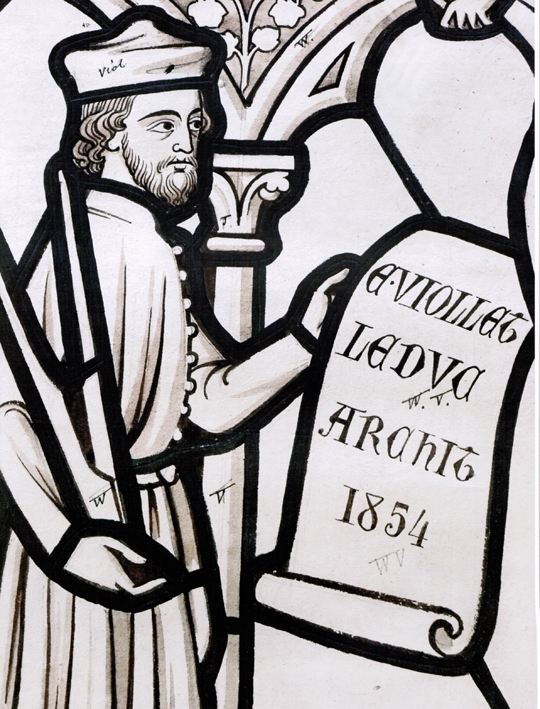 viol
W.
E·VIOLLET
LEDVC
W. V.
ARChIT
W
1854
W V